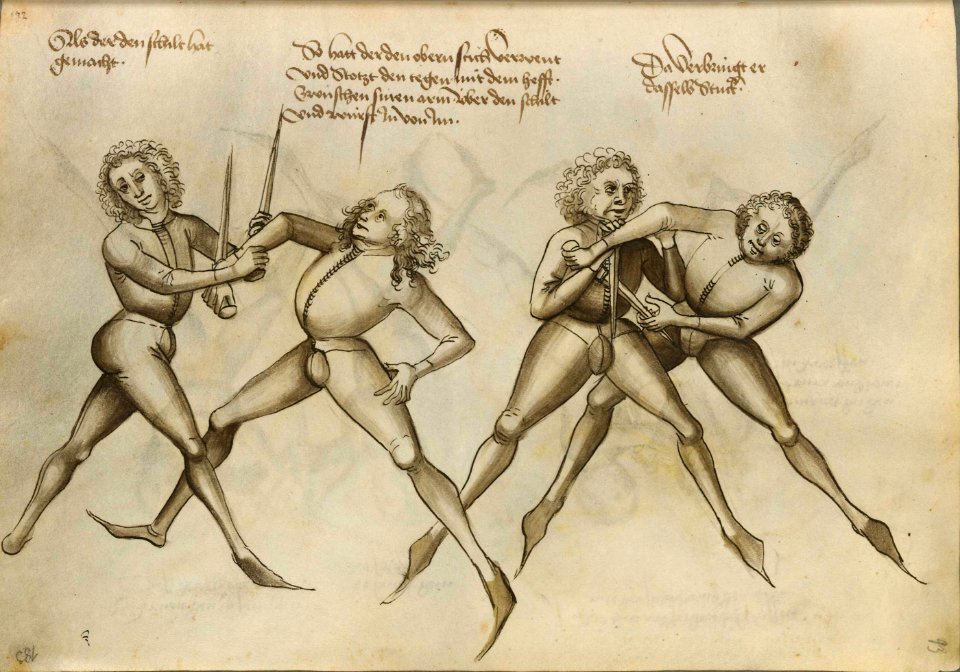 Als der den schilt hat
gemacht.
So hatt der den obern stich verwent
Vnd Stotzt den tegen mit dem hefft.
Zwuschen sinen arm vber den schilt
Vnd würft In von Im.
Da verbringt er
dasselb Stuck.